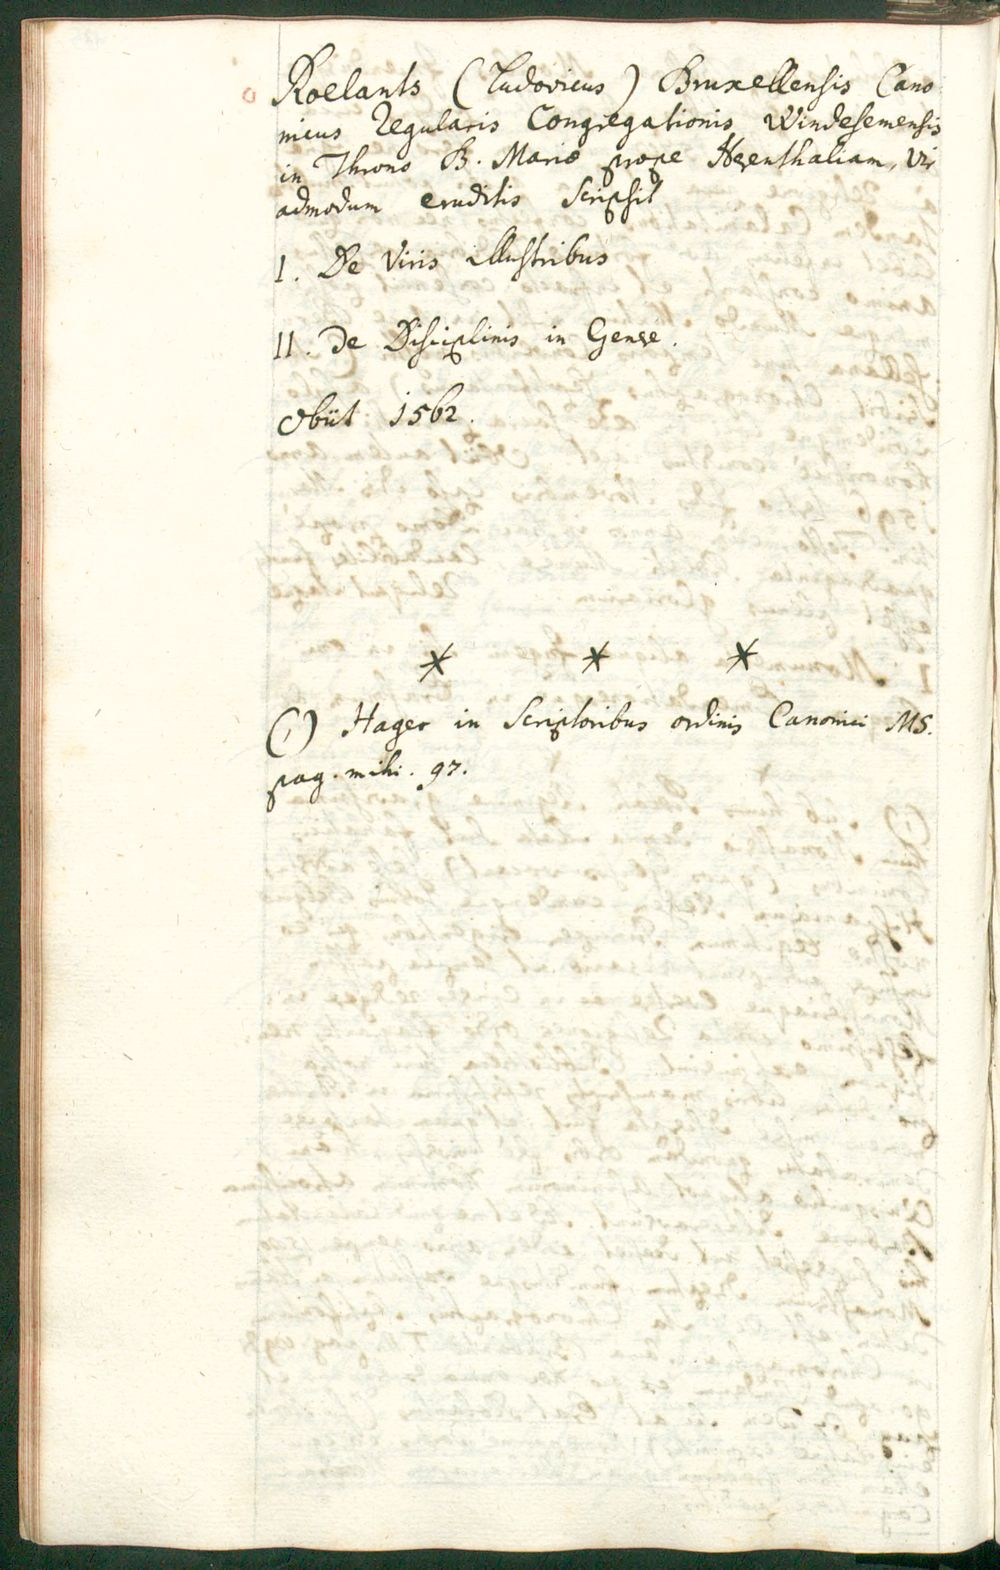 Roelants (Ludovicus) Bruxellensis Cano
nicus Regularis Congregationis Windesemensis
in Throno B. Mariæ prope Herenthaliam, Vir
admodum eruditis Scripsit
I. De Viris illustribus
II. De Disciplinis in Genere.
Obiit 1562.
* * *
(1) Hager in Scriptoribus ordinis Canonici MS.
pag. mihi. 97.